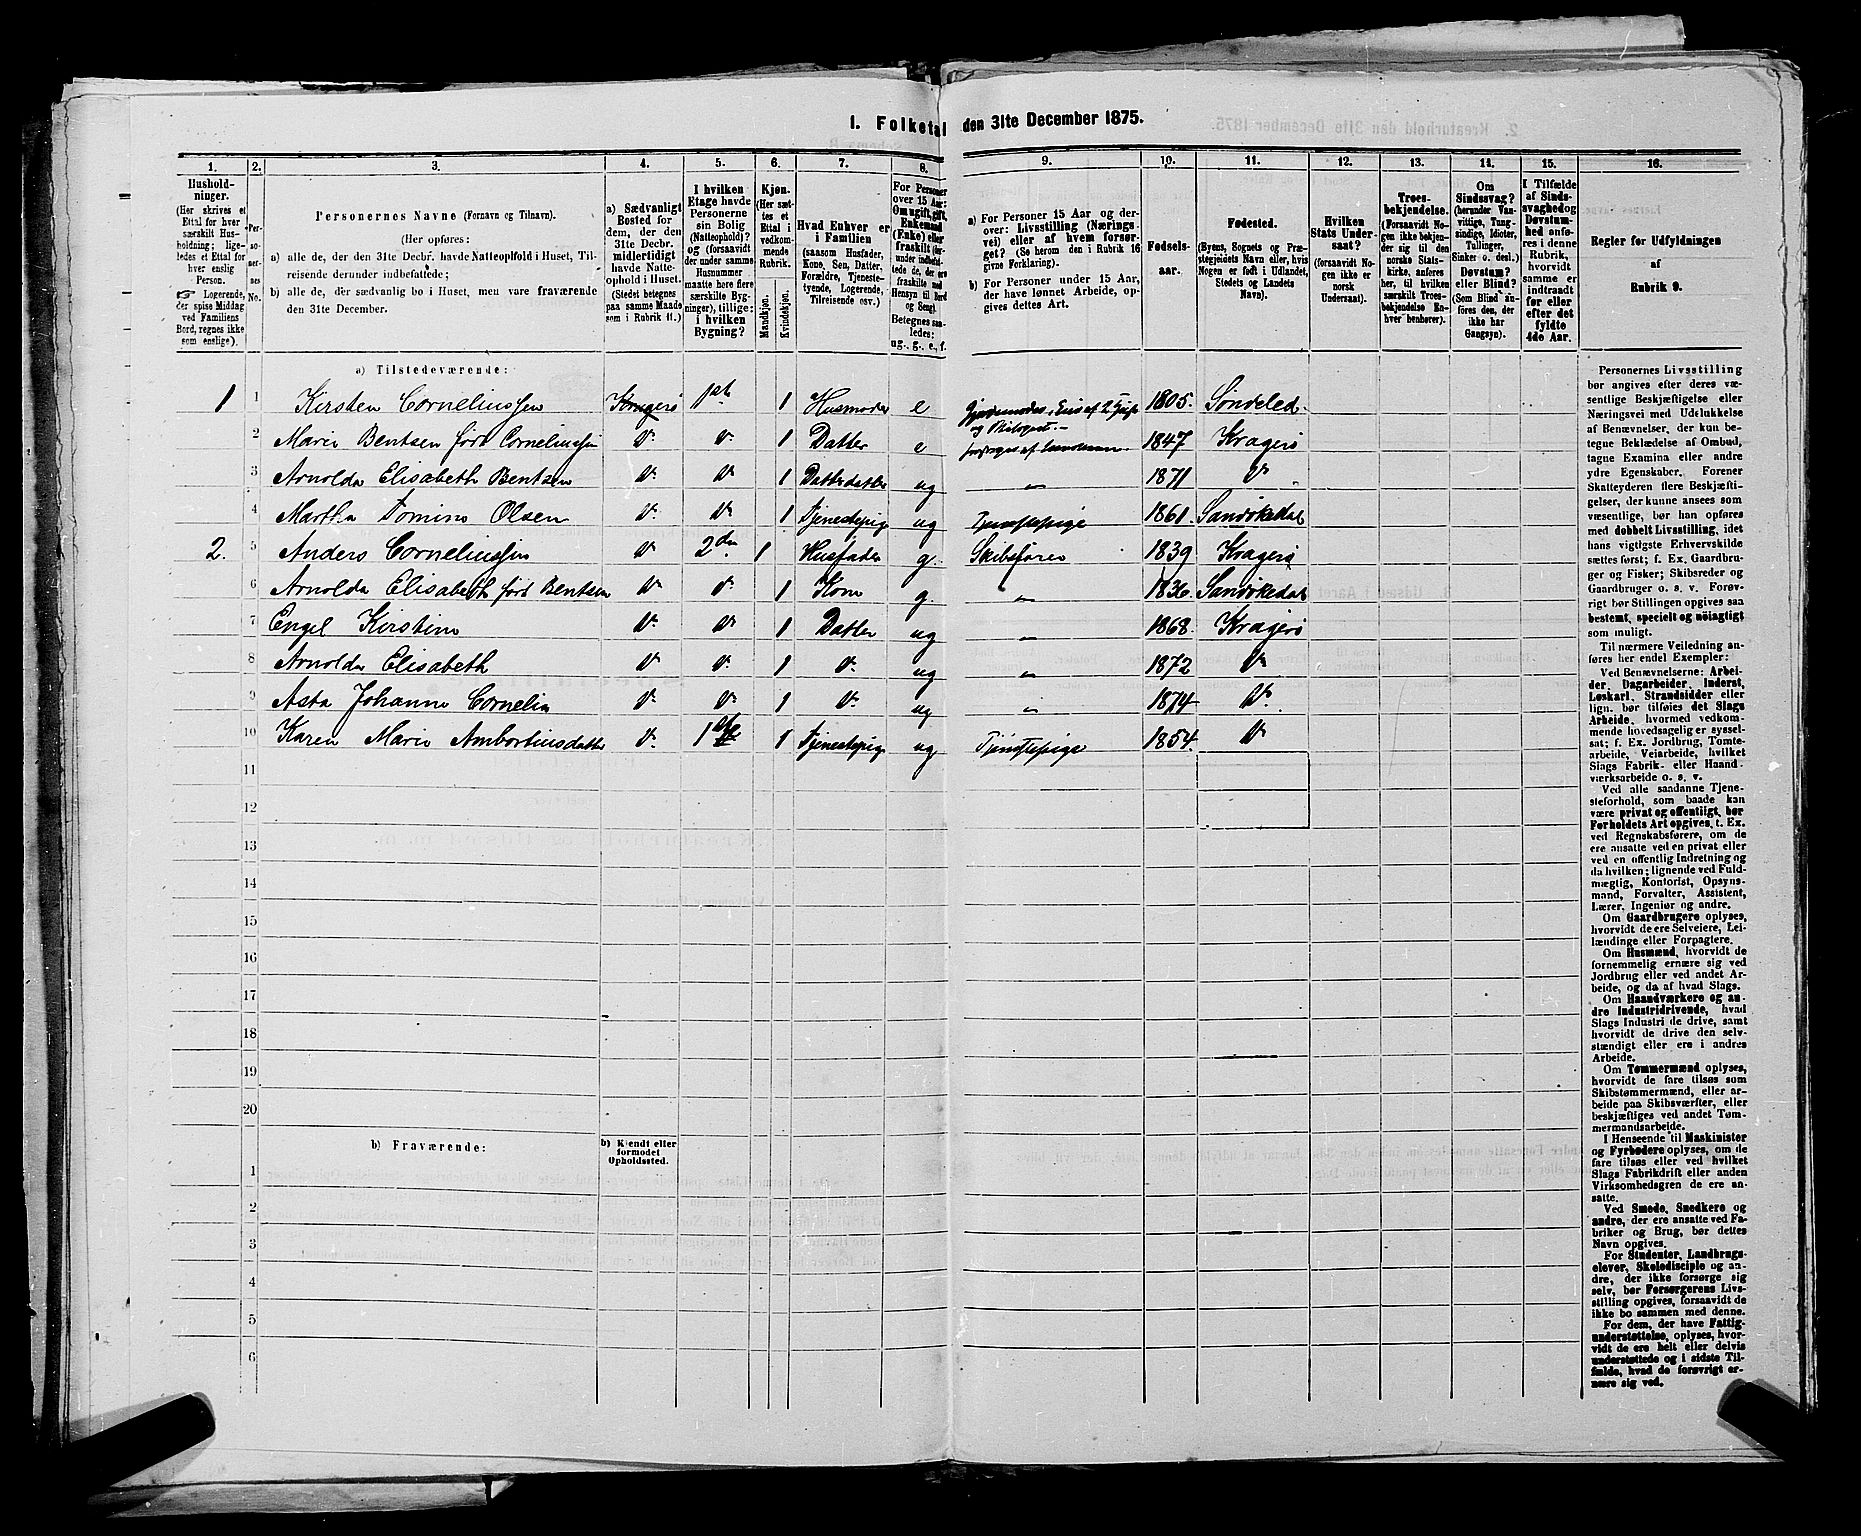 1. Folketal den 31te December 1875.
1. 2. 3. 4. 5. 6. 7. 8. 9. 10. 11. 12. 13. 14. 15. 16.
Hushold-
ninger.
(Her skrives et
Ettal for hver
særskilt Hus-
holdning; lige-
ledes et Ettal for
hver enslig
Person.
☞ Logerende,
der spise Middag
ved Familiens
Bord, regnes ikke
som enslige).
Per-
so-
ner-
nes
No.
Personernes Navne (Fornavn og Tilnavn).
(Her opføres:
a) alle de, der den 31te Decbr. havde Natteophold i Huset, Til-
reisende derunder indbefattede;
b) alle de, der sædvanlig bo i Huset, men vare fraværende
den 31te December.
a) Sædvanligt
Bosted for
dem, der den
31te Decbr.
midlertidigt
havde Natte-
ophold i Huset.
(Stedet betegnes
paa samme Maade
som i Rubrik 11.)
I hvilken
Etage havde
Personerne
sin Bolig
(Natteophold)?
og (forsaavidt
der under samme
Husnummer
maatte høre flere
særskilte Byg-
ninger), tillige:
i hvilken
Bygning?
Kjøn.
(Her sæt-
tes et
Ettal i
vedkom-
mende
Rubrik.
Mandkjøn.
Kvindekjøn.
Hvad Enhver er
i Familien
(saasom Husfader,
Kone, Søn, Datter,
Forældre, Tjeneste-
tyende, Logerende,
Tilreisende osv.)
For Personer
over 15 Aar:
Om ugift, gift,
Enkemand
(Enke) eller
fraskilt
Betegnes saa-
ledes:
ug., g., e., f.
a) For Personer 15 Aar og der-
over: Livsstilling (Nærings-
vei) eller af hvem forsør-
get? (Se herom den i Rubrik 16
givne Forklaring).
b) For Personer under 15 Aar,
der have lønnet Arbeide, op-
gives dettes Art.
Fødsels-
aar.
Fødested.
(Byens, Sognets og Præ-
stegjeldets Navn eller, hvis
Nogen er født i Udlandet,
Stedets og Landets
Navn).
Hvilken
Stats Under-
saat?
(forsaavidt No-
gen ikke er
norsk
Undersaat).
Troes-
bekjendelse.
(Forsaavidt No-
gen ikke bekjen-
der sig til den
norske Stats-
kirke, anføres
her, til hvilken
særskilt Troes-
bekjendelse En-
hver henhører).
Om
Sindssvag?
(herunder Van-
vittige, Tung-
sindige, Idioter,
Tullinger,
Sinker o. desl.)
Døvstum?
eller Blind?
(Som Blind an-
føres den, der
ikke har
Gangsyn).
I Tilfælde
af Sinds-
svaghed og
Døvstum-
hed anføres
i denne
Rubrik,
hvorvidt
samme er
indtraadt
før eller
efter det
fyldte
4de Aar.
Regler for Udfyldningen
af
Rubrik 9.
a) Tilstedeværende:
1 1 Kirsten Corneliussen Kragerø 1st 1 Husmoder e 1805. Søndeled
2 Marie Bentsen født Corneliussen v. v. 1 Datter e 1847 Kragerø
3 Arnolda Elisabeth Bentsen v. v. 1 Datterdatter ug " 1871 v.
4 Martha Tomine Olsen v. v. 1 Tjenestepige ug Tjenestepige 1861. Sandøkedal
2. 5 Anders Corneliussen v 2den 1 Husfader g. Skibsfører 1839 Kragerø
6 Arnolda Elisabeth født Bentsen v. v. 1 Kone g. " 1836. Sandøkedal
7 Engel Kirstine v. v. 1 Datter ug " 1868. Kragerø
8 Arnolda Elisabeth v. v. 1 v. ug " 1872 v
9 Asta Johanne Cornelia v. v. 1 v. ug " 1874 v.
10 Karen Marie Ambortiusdatter v. 1 1 Tjenestepige ug Tjenestepige 1854. v
11
12
13
14
15
16
17
18
19
20
b) Fraværende:
b) Kjendt eller
formodet
Opholdssted.
1
2
3
4
5
6
Personernes Livsstilling
bør angives efter deres væ-
sentlige Beskjæftigelse eller
Næringsvei med Udelukkelse
af Benævnelser, der kun be-
tegne Beklædelse af Ombud,
tagne Examina eller andre
ydre Egenskaber. Forener
Skatteyderen flere Beskjæfti-
gelser, der kunne ansees som
væsentlige, bør han opføres
med dobbelt Livsstilling, idet
hans vigtigste Erhvervskilde
sættes først; f. Ex. Gaardbru-
ger og Fisker; Skibsreder og
Gaardbruger o. s. v. Forøv-
rigt bør Stillingen opgives saa
bestemt, specielt og nøiagtigt
som muligt.
Til nærmere Veiledning an-
føres her endel Exempler:
Ved Benævnelserne: Arbei-
der, Dagarbeider, Inderst,
Løskarl, Strandsidder eller
lign. bør tilføies det Slags
Arbeide, hvormed vedkom-
mende hovedsagelig er syssel-
sat; f. Ex. Jordbrug, Tomte-
arbeide, Veiarbeide, hvilket
Slags Fabrik- eller Haand-
værksarbeide o. s. v.
Ved alle saadanne Tjene-
steforhold, som baade kan
være privat og offentligt, bør
Forholdets Art opgives, t. Ex.
ved Regnskabsførere, om de
ere ansatte ved en privat eller
ved en offentlig Indretning og
da hvilken; lignende ved Fuld-
mægtig, Kontorist, Opsyns-
mand, Forvalter, Assistent,
Lærer, Ingeniør og andre.
Om Gaardbrugere oplyses,
hvorvidt de ere Selveiere, Lei-
lændinge eller Forpagtere.
Om Husmænd, hvorvidt de
fornemmelig ernære sig ved
Jordbrug eller ved andet Ar-
beide, og da af hvad Slags.
Om Haandværkere og an-
dre Industridrivende, hvad
Slags Industri de drive, samt
hvorvidt de drive den selv-
stændigt eller ere i andres
Arbeide.
Om Tømmermænd oplyses,
hvorvidt de fare tilsøs som
Skibstømmermænd, eller ar-
beide paa Skibsværfter, eller
beskjæftiges ved andet Tøm-
mermandsarbeide.
I Henseende til Maskinister
og Fyrbødere oplyses, om de
fare tilsøs eller ved hvilket
Slags Fabrikdrift eller anden
Virksomhedsgren de ere an-
satte.
Ved Smede, Snedkere og
andre, der ere ansatte ved Fa-
briker og Brug, bør dettes
Navn opgives.
For Studenter, Landbrugs-
elever, Skoledisciple og an-
dre, der ikke forsørge sig
selv, bør Forsørgerens Livs-
stilling opgives, forsaavidt de
ikke bo sammen med denne.
For dem, der have Fattig-
understøttelse, oplyses, hvor-
vidt de ere helt eller delvis
understøttede og i sidste Til-
fælde, hvad de forøvrigt er-
nære sig ved.